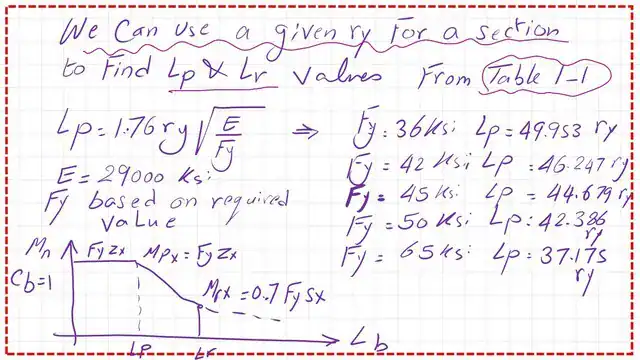 We Can use a given ry For a section
to Find Lp & Lr values From Table 1-1
Lp = 1.76 ry √(E/Fy) ⇒ Fy = 36 Ksi Lp = 49.953 ry
Fy = 42 Ksi Lp = 46.247 ry
E = 29000 Ksi
Fy = 45 Ksi Lp = 44.679 ry
Fy based on required
value
Fy = 50 Ksi Lp = 42.386
ry
Fy = 65 Ksi Lp = 37.175
ry
Mn
FyZx
Mpx = FyZx
Cb=1
Mrx = 0.7 FySx
Lb
Lp
Lr